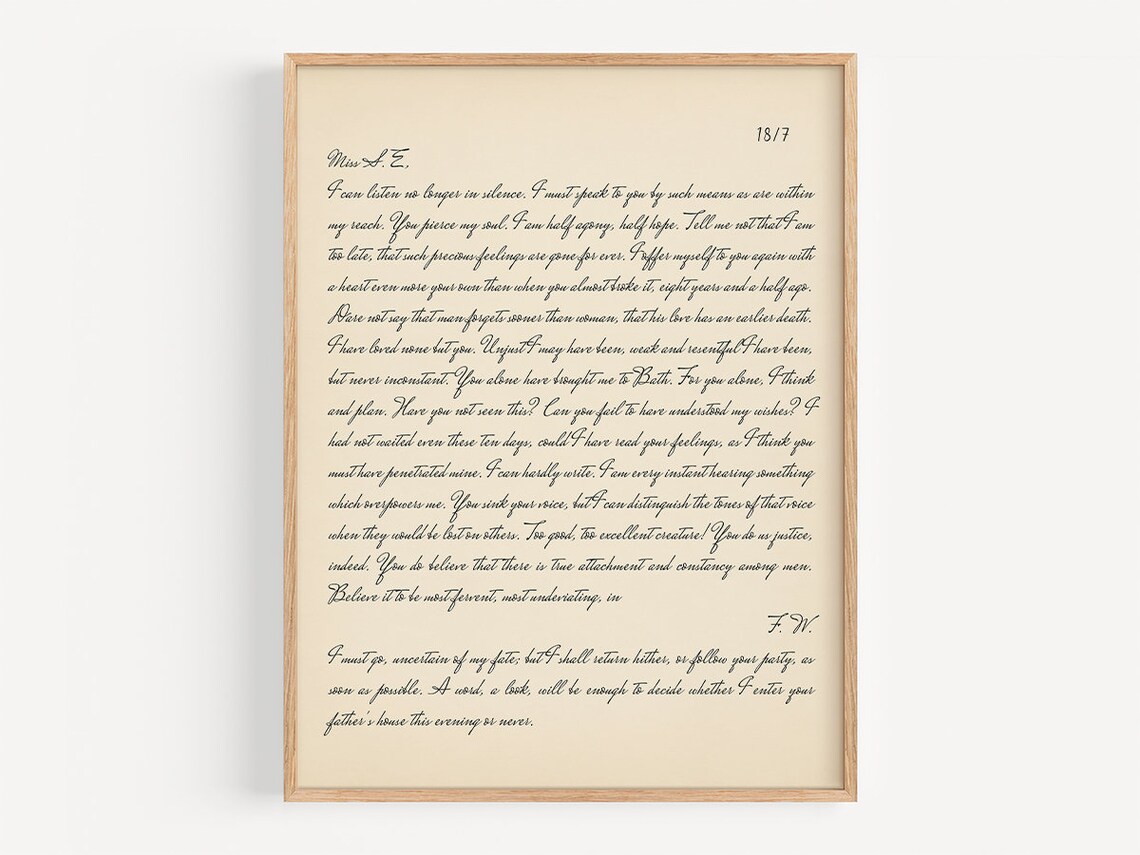 18/7
Miss S. E,
I can listen no longer in silence. I must speak to you by such means as are within
my reach. You pierce my soul. I am half agony, half hope. Tell me not that I am
too late, that such precious feelings are gone for ever. I offer myself to you again with
a heart even more your own than when you almost broke it, eight years and a half ago.
Dare not say that man forgets sooner than woman, that his love has an earlier death.
I have loved none but you. Unjust I may have been, weak and resentful I have been,
but never inconstant. You alone have brought me to Bath. For you alone, I think
and plan. Have you not seen this? Can you fail to have understood my wishes? I
had not waited even these ten days, could I have read your feelings, as I think you
must have penetrated mine. I can hardly write. I am every instant hearing something
which overpowers me. You sink your voice, but I can distinguish the tones of that voice
when they would be lost on others. Too good, too excellent creature! You do us justice,
indeed. You do believe that there is true attachment and constancy among men.
Believe it to be most fervent, most undeviating, in
F. W.
I must go, uncertain of my fate; but I shall return hither, or follow your party, as
soon as possible. A word, a look, will be enough to decide whether I enter your
father's house this evening or never.